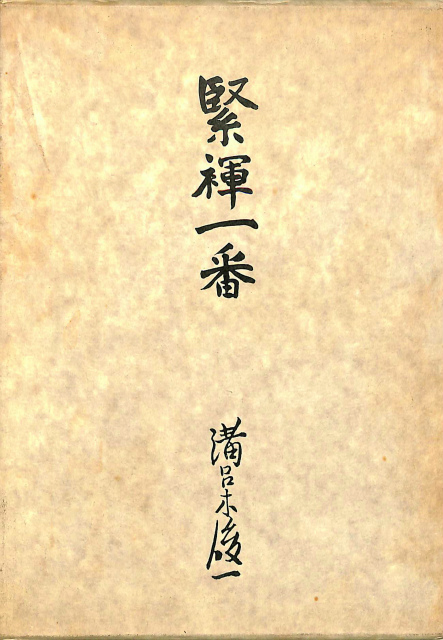 緊褌一番
溝呂木俊一